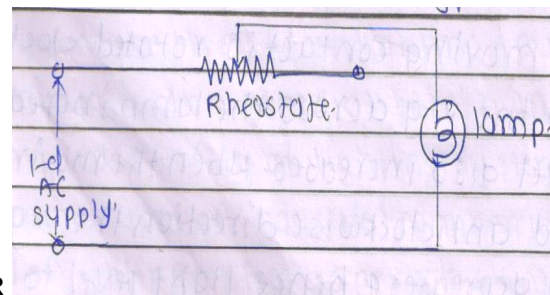 Rheostate.
lamp
1-d
AC
supply